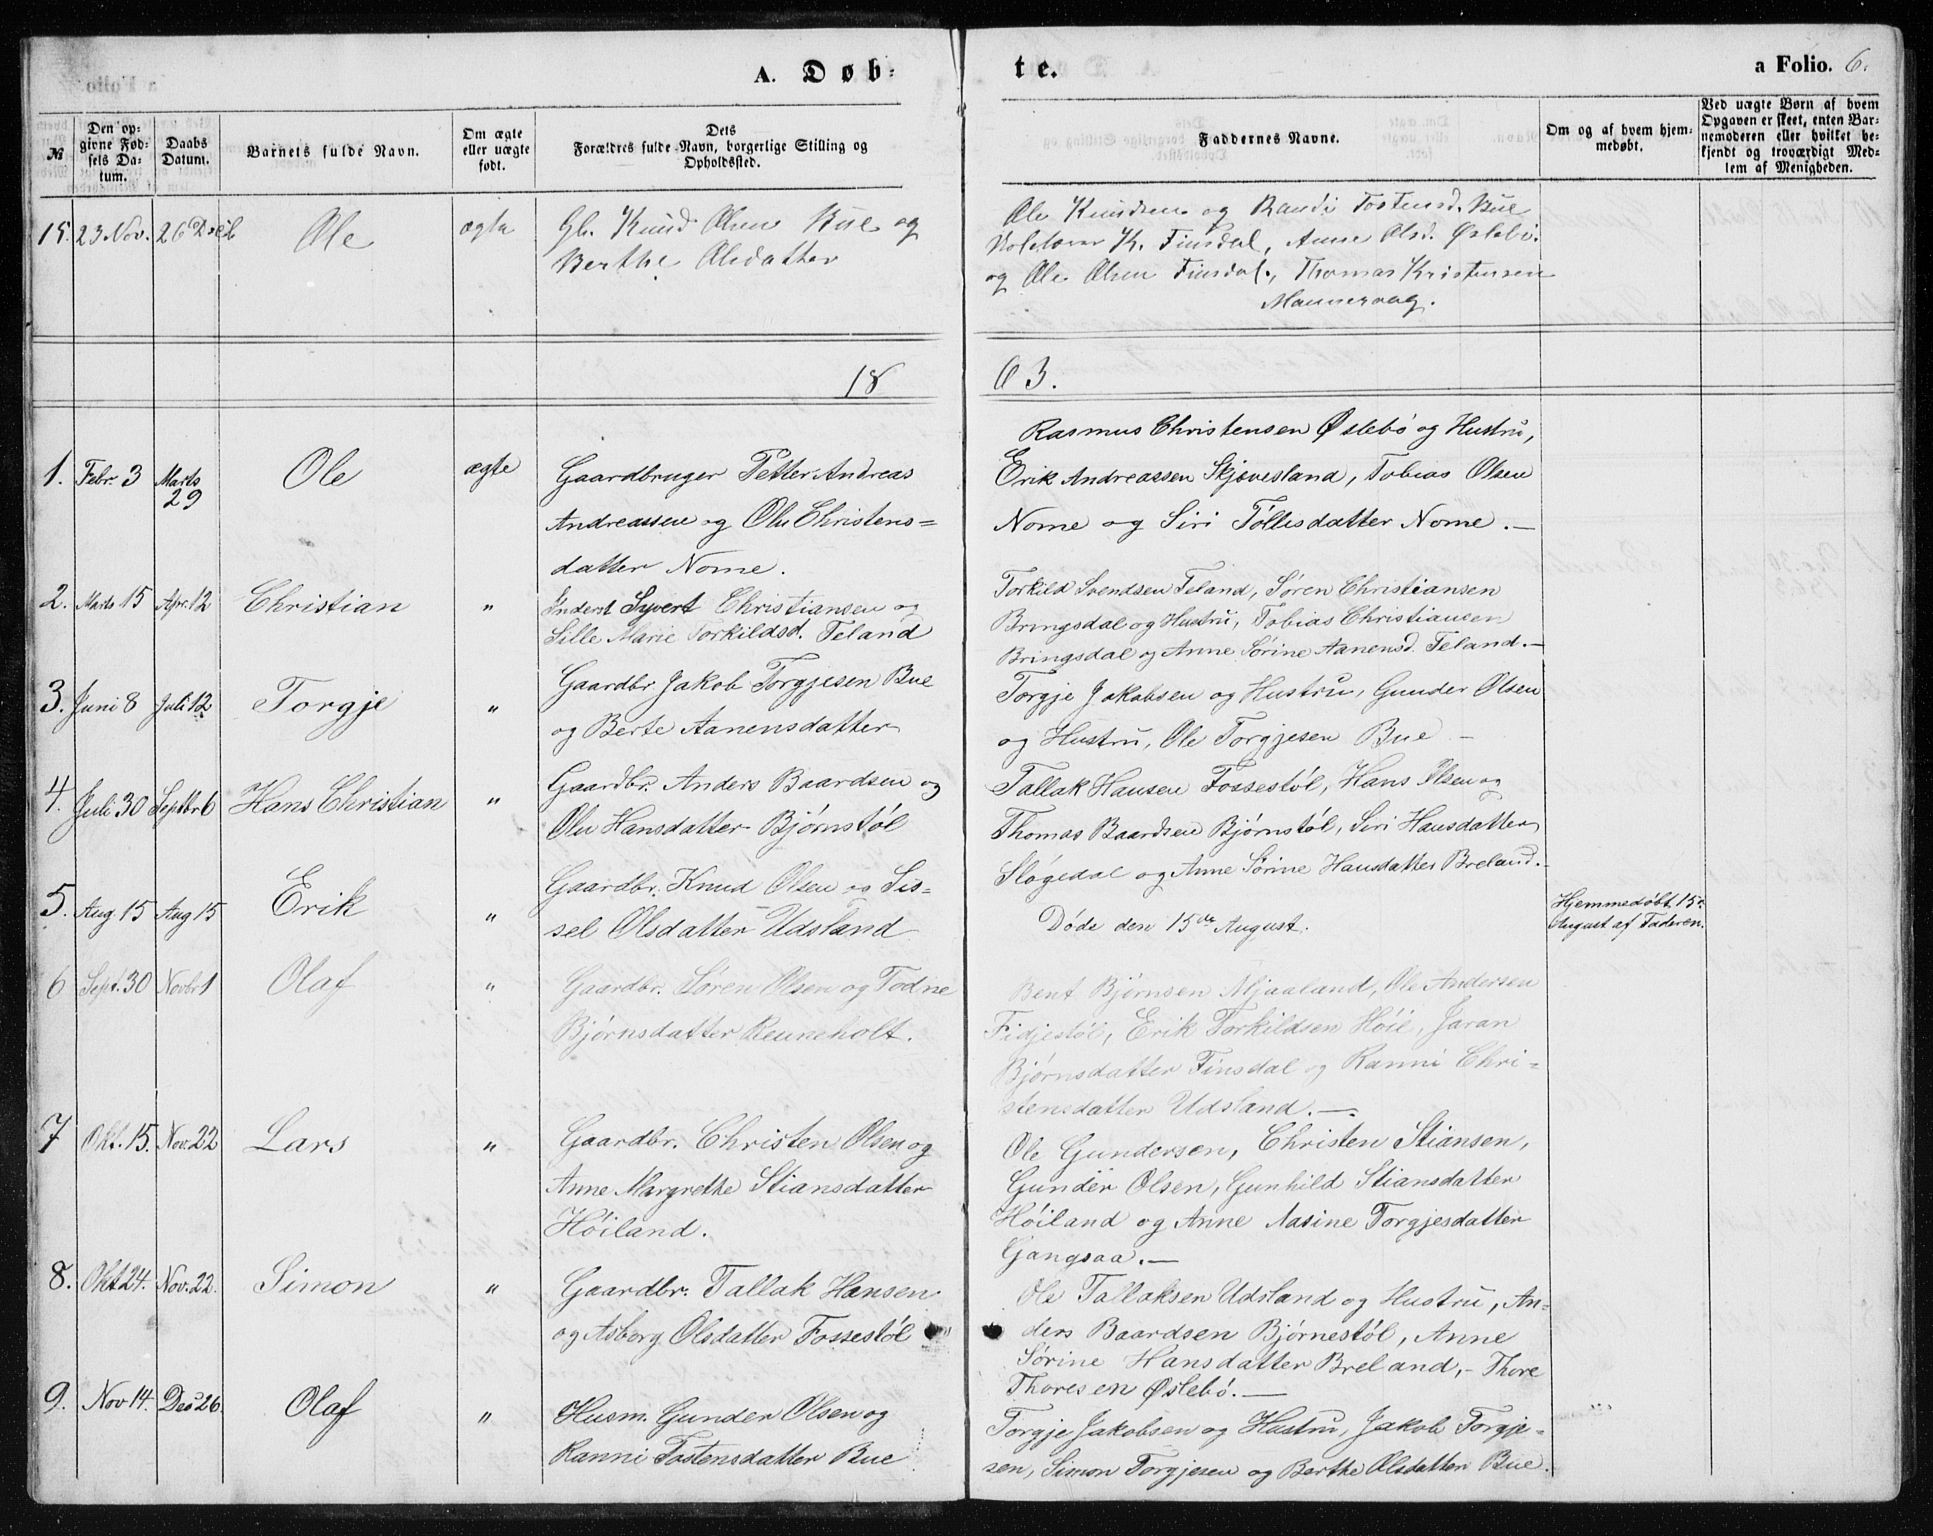 A. Døb-
te.
a Folio. 6.
№
Den op-
givne Fød-
sels Da-
tum.
Daabs
Datum.
Barnets fulde Navn.
Om ægte
eller uægte
født.
Dets
Forældres fulde Navn, borgerlige Stilling og
Opholdssted.
Faddernes Navne.
Om og af hvem hjem-
medøbt.
Ved uægte Børn af hvem
Opgaven er skeet, enten Bar-
nemoderen eller hvilket be-
kjendt og troværdigt Med-
lem af Menigheden.
15. 23 Nov. 26 Decb Ole ægte Gb. Knud Olsen Bue og
Berthe Olsdatter
Ole Knudsen og Randi Tostensd. Bue
K. Finsdal, Anne Olsd. Øslebö.
og Ole Olsen Finsdal, Thomas Kristensen
Mannevaag.
18 63.
1. Febr. 3 Marts
29 Ole ægte Gaardbruger Petter Andreas
Andreassen og Olu Christens=
datter Nome.
Rasmus Christensen Øslebö og Hustru,
Erik Andreassen Skjævesland, Tobias Olsen
Nome og Siri Töllesdatter Nome.—
2. Marts 15 Apr. 12 Christian " Inderst Syvert Christiansen og
Sille Marie Torkildsd. Feland
Torkild Svendsen Feland, Sören Christiansen
Bringsdal og Hustru, Tobias Christiansen
Bringsdal og Anne Sörine Aanensd. Feland.—
3. Juni 8 Juli 12 Torgje " Gaardbr Jakob Torgjesen Bue
og Berte Aanensdatter
Torgje Jakobsen og Hustru, Gunder Olsen
og Hustru, Ole Torgjesen Bue —
4. Juli 30 Septbr 6 Hans Christian " Gaardbr. Anders Baardsen og
Olu Hansdatter Björnstöl
Tallak Hansen Fossestöl, Hans Olsen og
Thomas Baardsen Björnstöl, Siri Hansdatter
Slögedal og Anne Sörine Hansdatter Breland.—
5. Aug 15 Aug 15 Erik " Gaardbr. Knud Olsen og Sis=
sel Olsdatter Udsland
Döde den 15de August.
Hjemmedöbt 15de
August af Faderen.
6 Sept. 30 Novbr 1 Olaf " Gaardbr. Sören Olsen og Todne
Björnsdatter Reuneholt.
Bent Björnsen Mjaaland, Ole Andersen
Fidjestöl, Erik Torkildsen Höie, Jaran
Björnsdatter Finsdal og Ranni Chri=
stensdatter Udsland.—
7 Okt. 15. Nov. 22 Lars " Gaardbr. Christen Olsen og
Anne Margrethe Stiansdatter
Höiland.
Ole Gundersen, Christen Stiansen,
Gunder Olsen, Gunhild Stiansdatter
Höiland og Anne Nasine Torgjesdatter
Gangsaa.—
8. Okt 24. Nov. 22. Simon " Gaardbr. Tallak Hansen
og Asborg Olsdatter Fossestöl
Ole Tallaksen Udsland og Hustru, An=
ders Baardsen Björnestöl, Anne
Sörine Hansdatter Breland,— Thore
Thoresen Øslebö.—
9. Nov 14. Dec 26. Olaf " Husm. Gunder Olsen og
Ranni Tostensdatter Bue
Torgje Jakobsen og Hustru, Jakob Torgje=
sen, Simon Torgjesen og Berthe Olsdatter Bue.